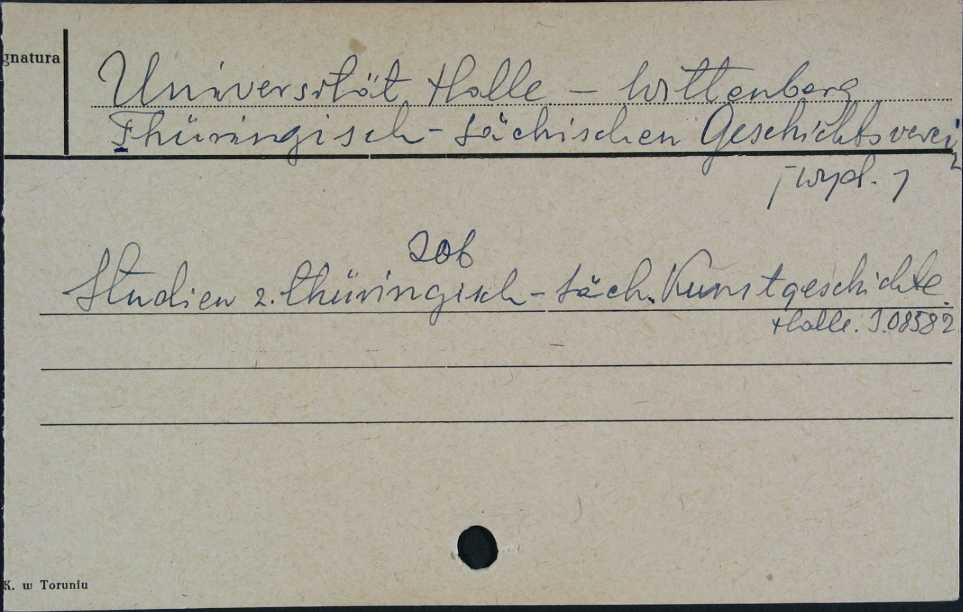 gnatura
Universität Halle - Wittenberg
Thüringisch - Sächischen Geschichtsverein
[wyd.]
zob
Studien z. thüringisch - säch. Kunstgeschichte.
Halle. J.08582
K. w Toruniu